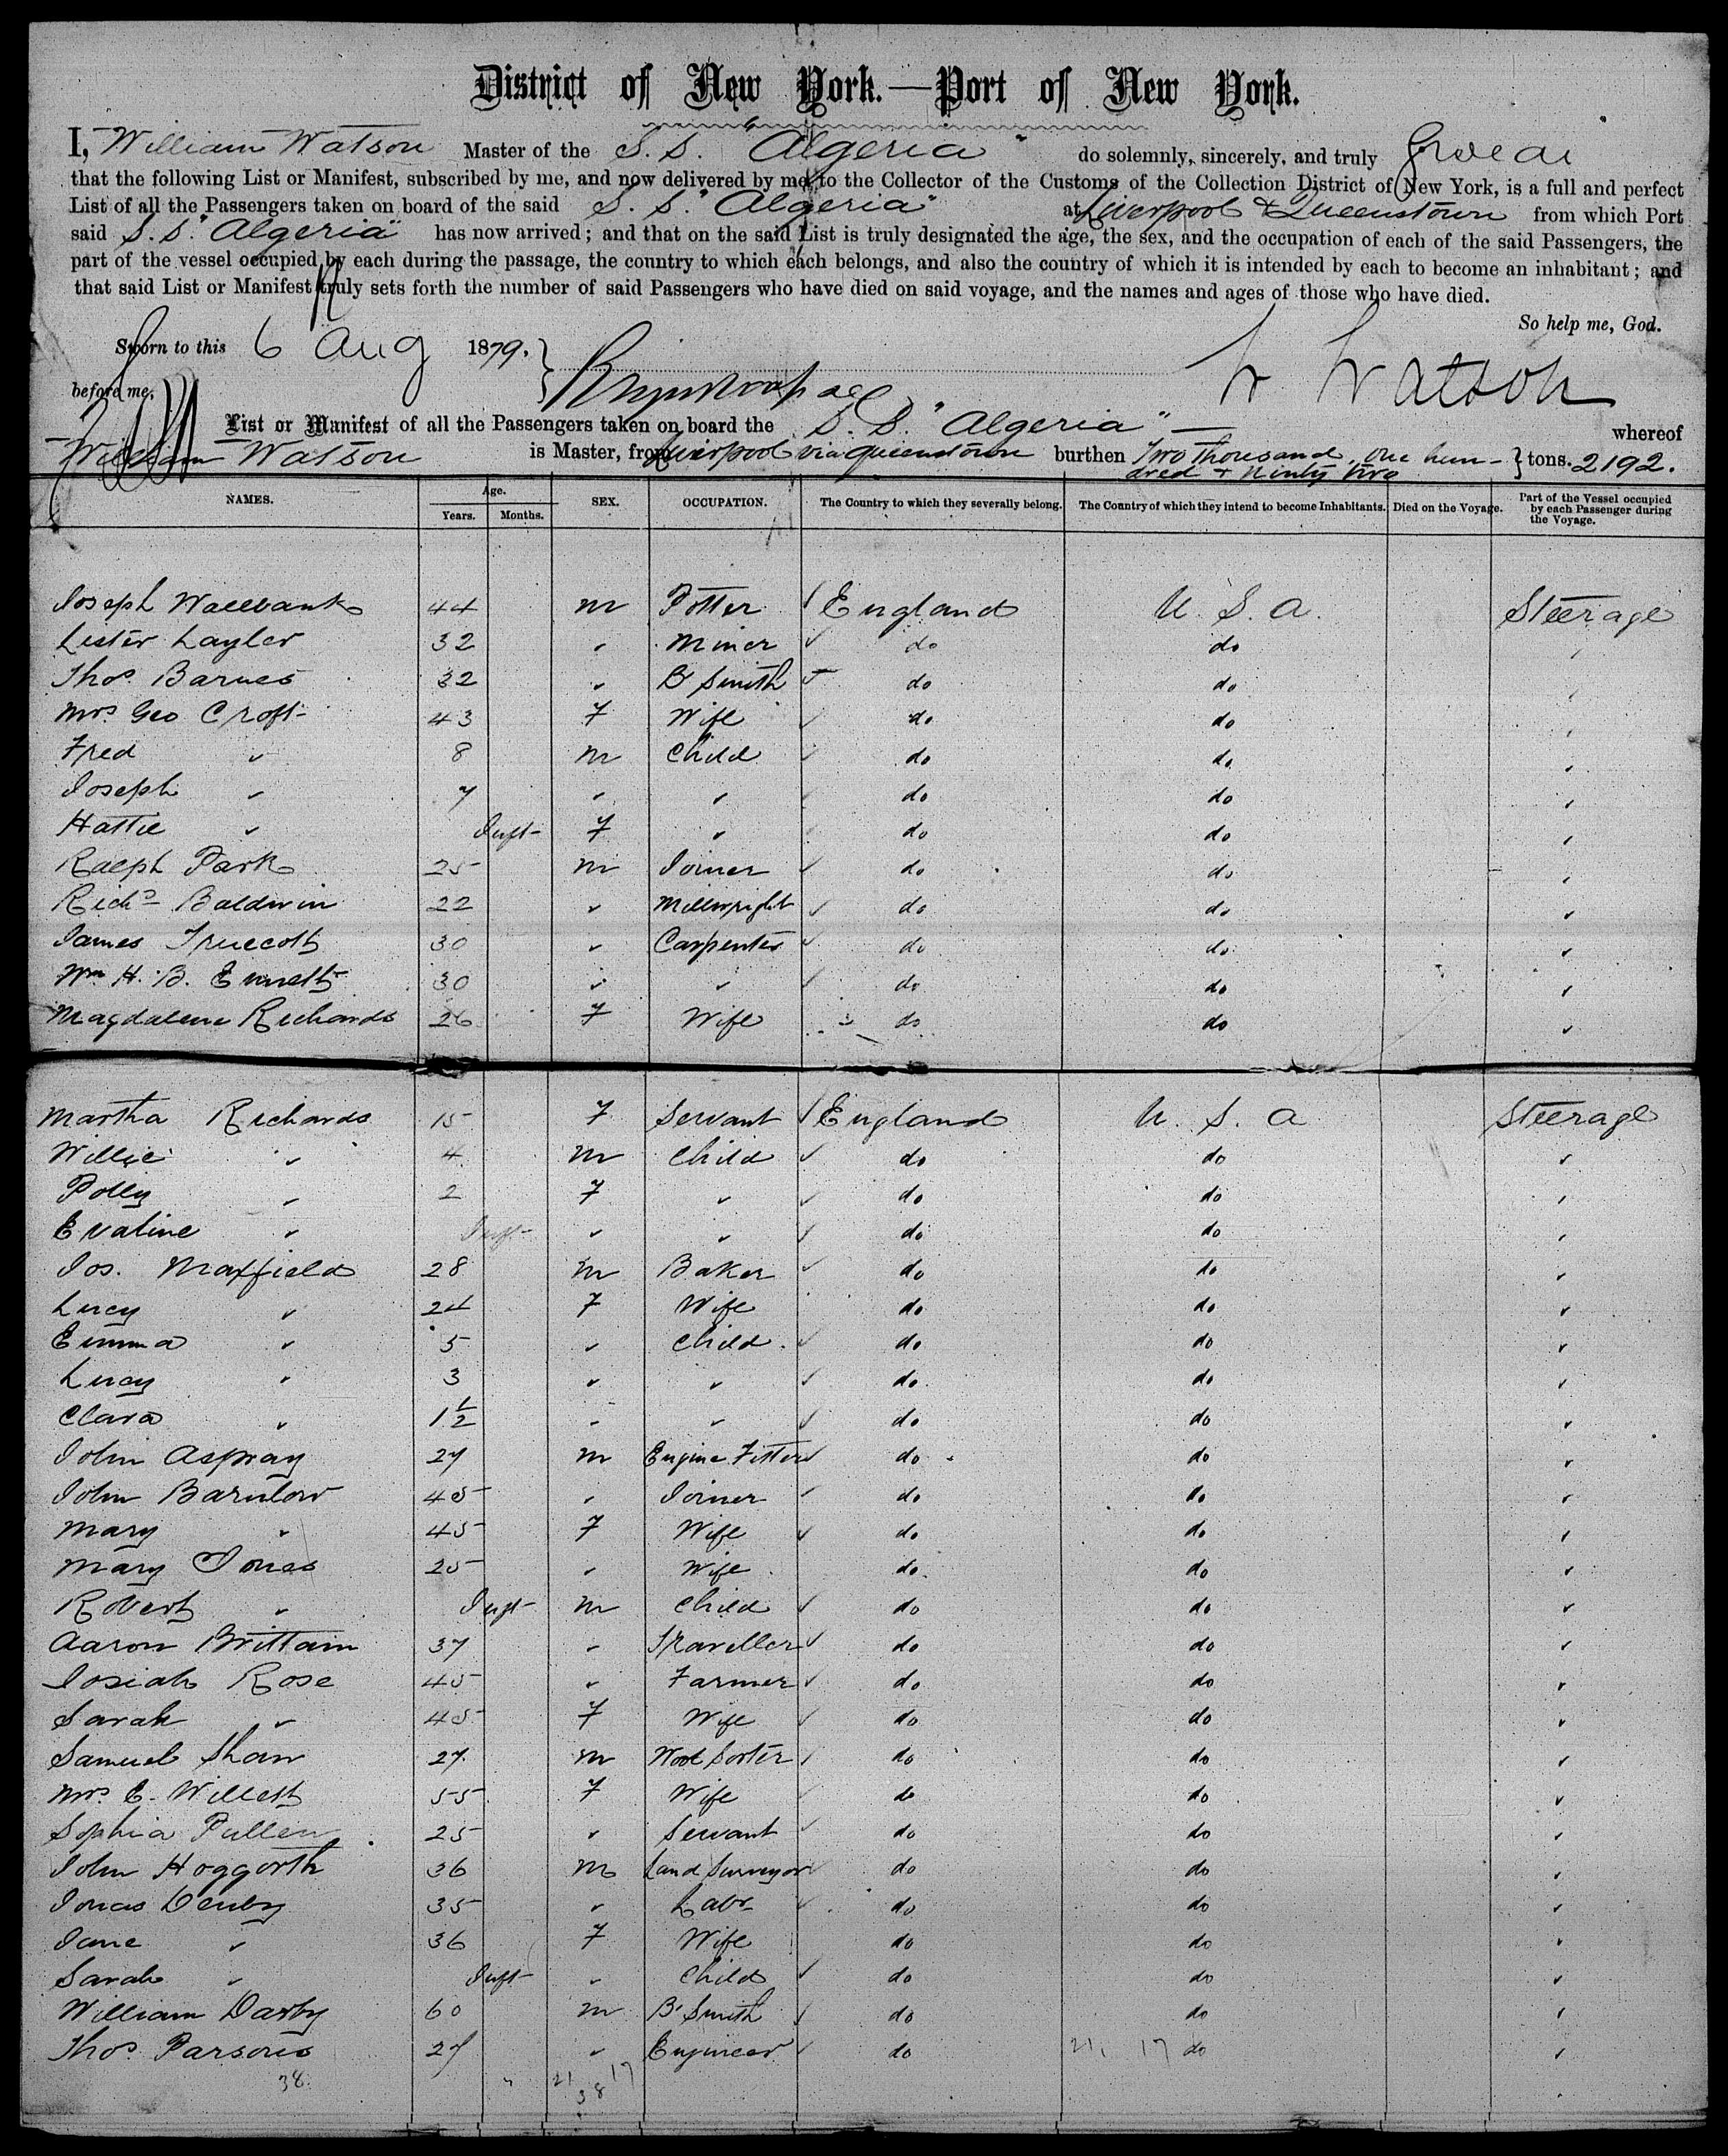 District of New York.—Port of New York.
I, William Watson Master of the S. S. "Algeria" do solemnly, sincerely, and truly
that the following List or Manifest, subscribed by me, and now delivered by me to the Collector of the Customs of the Collection District of New York, is a full and perfect
List of all the Passengers taken on board of the said S. S. "Algeria" at Liverpool & Queenstown from which Port
said S.S. "Algeria" has now arrived; and that on the said List is truly designated the age, the sex, and the occupation of each of the said Passengers, the
part of the vessel occupied by each during the passage, the country to which each belongs, and also the country of which it is intended by each to become an inhabitant; and
that said List or Manifest truly sets forth the number of said Passengers who have died on said voyage, and the names and ages of those who have died.
So help me, God.
Sworn to this 6 Aug 1879. W Watson
before me,
List or Manifest of all the Passengers taken on board the S. S. "Algeria" whereof
William Watson is Master, from Liverpool via Queenstown burthen Two Thousand, One hun-
dred & Ninety two } tons. 2192.
NAMES. Age. Years. Months. SEX. OCCUPATION. The Country to which they severally belong. The Country of which they intend to become Inhabitants. Died on the Voyage. Part of the Vessel occupied by each Passenger during the Voyage.
Joseph Wallbank 44 m Potter England U. S. A. Steerage
Lester Layler 32 " Miner do do "
Thos. Barnes 32 " B Smith do do "
Mrs. Geo Croft 43 F Wife do do "
Fred " 8 m Child do do "
Joseph " 7 " " do do "
Hattie " Inft F " do do "
Ralph Park 25 m Joiner do do "
Richd Baldwin 22 " Millwright do do "
James Truecott 30 " Carpenter do do "
Wm. H. B. 30 " " do do "
Magdalene Richards 26 F Wife do do "
Martha Richards 15 F Servant England U. S. A Steerage
Willie " 4 m Child do do "
Polly " 2 F " do do "
Evaline " Inft " " do do "
Jos. Maxfield 28 m Baker do do "
Lucy " 24 F Wife do do "
Emma " 5 " Child do do "
Lucy " 3 " " do do "
Clara " 1½ " " do do "
John Aspray 27 m Engine Fitter do do "
John Barnlow 45 " Joiner do do "
Mary " 45 F Wife do do "
Mary Jones 25 " Wife do do "
Robert " Inft m Child do do "
Aaron Brittain 37 " Traveller do do "
Josiah Rose 45 " Farmer do do "
Sarah " 45 F Wife do do "
Samuel Shaw 27 m Wool Sorter do do "
Mrs. E. Willett 55 F Wife do do "
Sophia Pullen 25 " Servant do do "
John Hoggorth 36 m Land Surveyor do do "
Jonas Denby 35 " Labr do do "
Jane " 36 F Wife do do "
Sarah " Inft " Child do do "
William Darby 60 m B Smith do do "
Thos. Parsons 27 " Engineer do 21. 17 do "
38 21 17
38